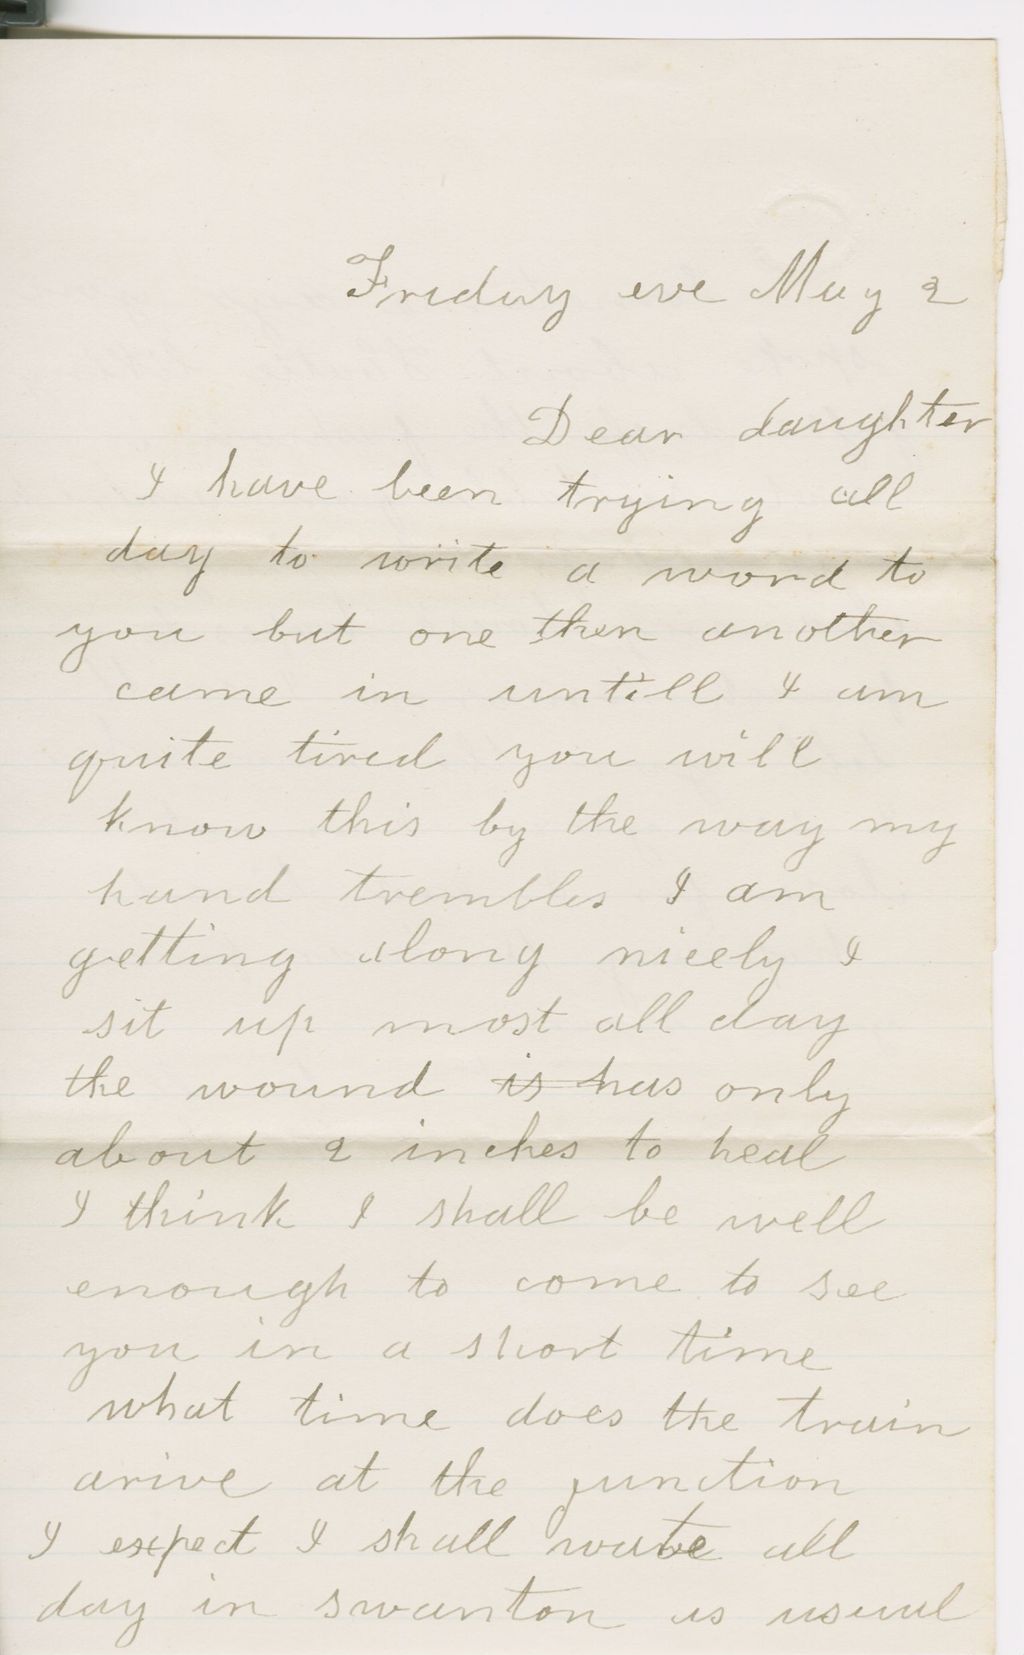 Friday eve May 2
Dear daughter
I have been trying all
day to write a word to
you but one then another
came in untill I am
quite tired you will
know this by the way my
hand trembles I am
getting along nicely I
sit up most all day
the wound is has only
about 2 inches to heal
I think I shall be well
enough to come to see
you in a short time
what time does the train
arive at the junction
I expect I shall waite all
day in swanton as usual